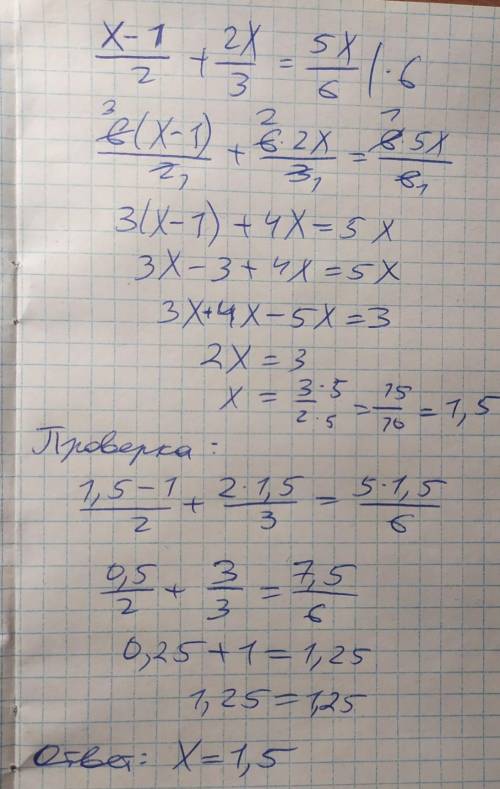 (x-1)/2 + 2x/3 = 5x/6 |·6
6³(x-1)/2₁ + 6²·2x/3₁ = 6¹·5x/6₁
3(x-1) + 4x = 5x
3x - 3 + 4x = 5x
3x + 4x - 5x = 3
2x = 3
x = 3·5/2·5 = 15/10 = 1,5
Проверка:
(1,5-1)/2 + 2·1,5/3 = 5·1,5/6
0,5/2 + 3/3 = 7,5/6
0,25 + 1 = 1,25
1,25 = 1,25
Ответ: x = 1,5